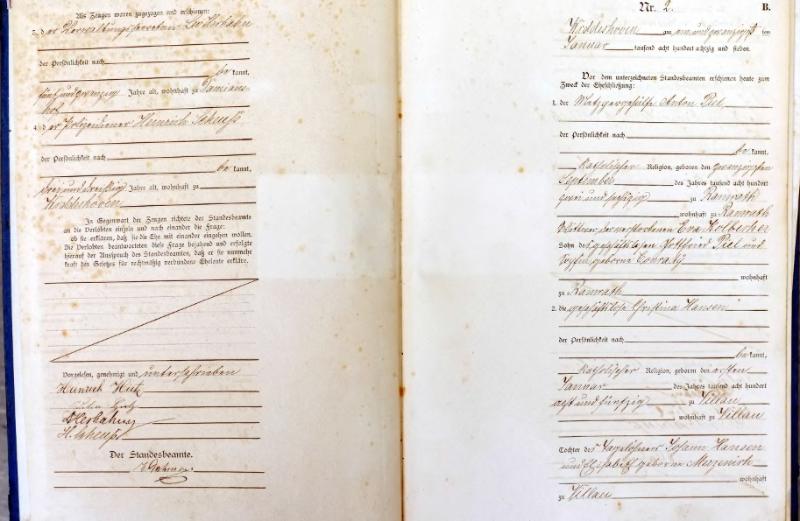 Als Zeugen waren zugezogen und erschienen:
3. d er Verwaltungssecretär
der Persönlichkeit nach
be kannt,
fünf und zwanzig Jahre alt, wohnhaft zu Damian-
hof
4. d er Polizeidiener Heinrich Scheuß
der Persönlichkeit nach
be kannt,
drei und dreißig Jahre alt, wohnhaft zu
Weddeshoven
In Gegenwart der Zeugen richtete der Standesbeamte
an die Verlobten einzeln und nach einander die Frage:
ob sie erklären, daß sie die Ehe mit einander eingehen wollen.
Die Verlobten beantworteten diese Frage bejahend und erfolgte
hierauf der Ausspruch des Standesbeamten, daß er sie nunmehr
kraft des Gesetzes für rechtmäßig verbundene Eheleute erkläre.
Vorgelesen, genehmigt und unterschrieben
Heinrich
H. Scheuß
Der Standesbeamte.
Nr. 2. B.
Weddeshoven am ein und zwanzigsten
Januar tausend acht hundert achtzig und sieben.
Vor dem unterzeichneten Standesbeamten erschienen heute zum
Zweck der Eheschließung:
1. der Metzgergehülfe Anton Piel
der Persönlichkeit nach
be kannt,
katholischer Religion, geboren den zwanzigsten
September des Jahres tausend acht hundert
zwei und sechszig zu Ramrath
wohnhaft zu Ramrath
Wittwer der verstorbenen Eva
Sohn des geschäftslosen Gottfried Piel und
Sophia geborne Conrads
wohnhaft
zu Ramrath
2. die geschäftslose Christina Hansen
der Persönlichkeit nach
be kannt,
katholischer Religion, geboren den ersten
Januar des Jahres tausend acht hundert
acht und fünfzig zu Villau
wohnhaft zu Villau
Tochter des Tagelöhners Johann Hansen
und Elisabeth geborne
wohnhaft
zu Villau